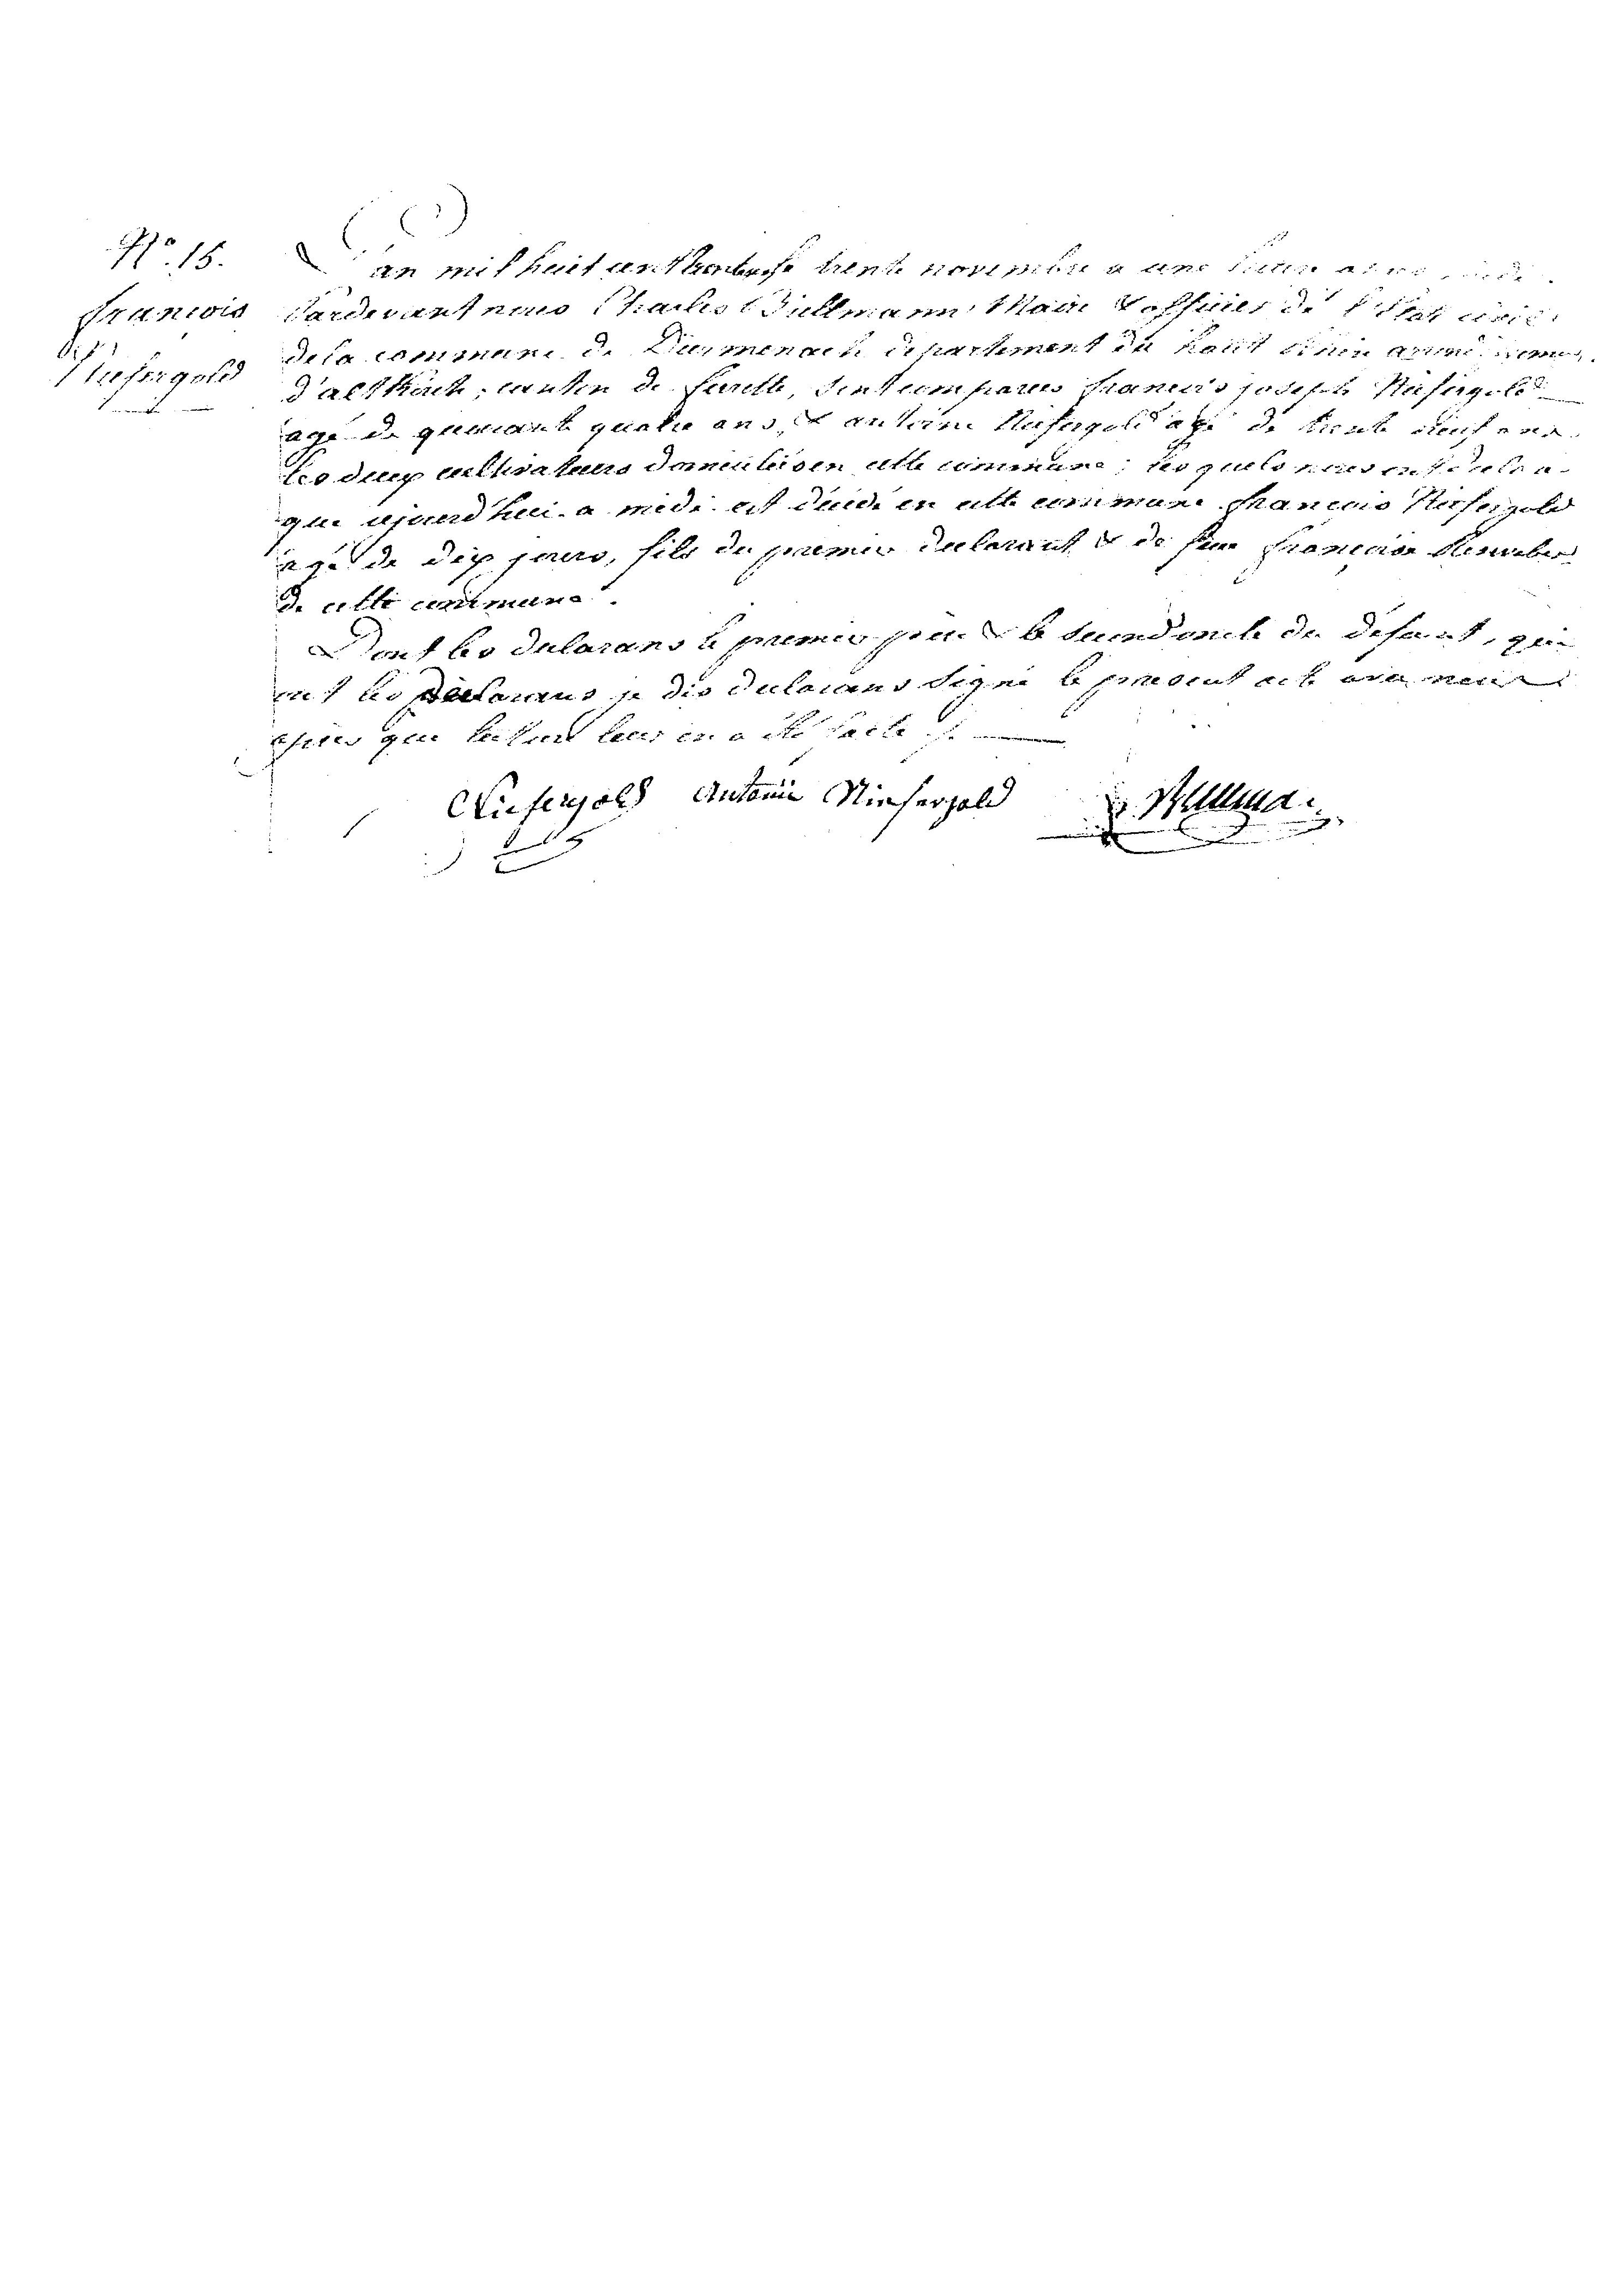 No. 15.
françois
Niefergold
L'an mil huit cent trente novembre a une heure
Pardevant nous Charles Bullmann Maire & officier de l'Etat civil
de la commune de Durmenach departement du haut Rhin
d'altkirch, canton de ferette, sont comparus francois joseph Niefergold
agé de quarante quatre ans, & antoine Niefergold agé de trente neuf ans
les deux cultivateurs domiciliés en cette commune; les quels nous ont
que ajourd'hui a midi est décédé en cette commune françois Niefergold
agé de dix jours, fils du premier declarant & de françoise
de cette commune.
Dont les declarans le premier père & le second oncle du défunt, qui
ont les declarans je dis declarans signé le present acte avec nous
après que lecture leur en a été faite
Niefergold Antoni Niefergold